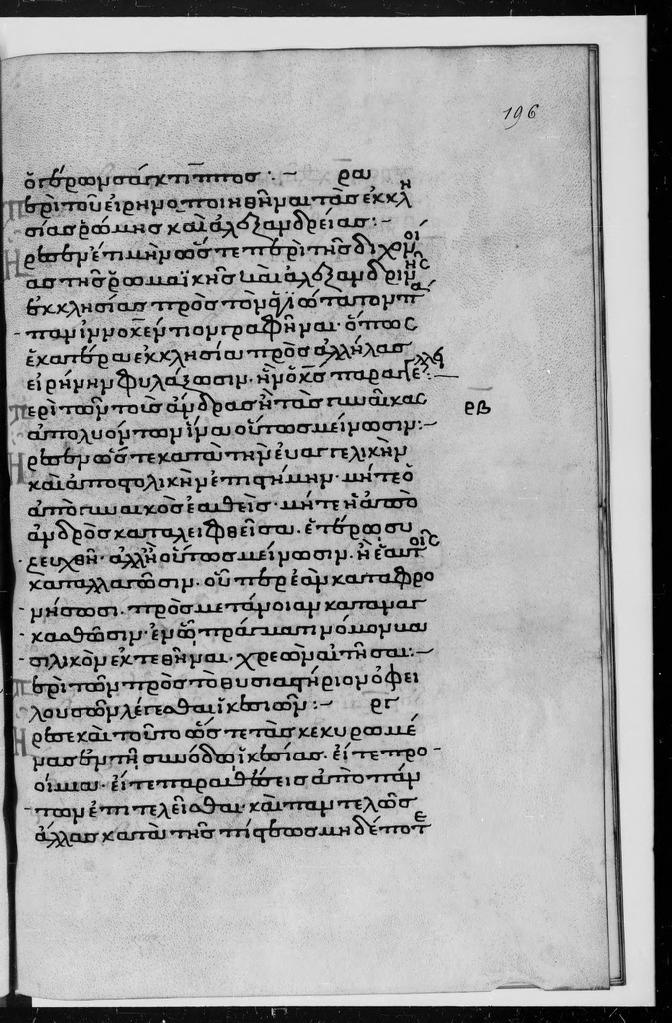 196
ὁ γέρων σάγκτιππος :— ρα
Περὶ τοῦ εἰρηνοποιηθῆναι τὰς ἐκκλη
σίας ῥώμης καὶ ἀλεξανδρείας :—
Ἤρεσεν ἔτι μὴν ὥστε περὶ τῆς διχονοί
ας τῆς ῥωμαϊκῆς καὶ ἀλεξανδρινῆς
ἐκκλησίας πρὸς τὸν ἁγιώτατον πά
παν ἰννοκέντιον γραφῆναι. ὅπως
ἑκατέρα ἐκκλησία πρὸς ἀλλήλας
εἰρήνην φυλάξωσιν. ἣν ὁ κς παραγγέλλει :—
Περὶ τῶν τοὺς ἄνδρας ἢ τὰς γυναῖκας
ρβ
ἀπολυόντων ἵνα οὕτως μείνωσιν :—
Ἤρεσεν ὥστε κατὰ τὴν εὐαγγελικὴν
καὶ ἀποστολικὴν ἐπιστήμην. μήτε ὁ
ἀπὸ γυναικὸς ἐαθεὶς. μήτε ἡ ἀπὸ
ἀνδρὸς καταλειφθεῖσα. ἑτέρῳ συ
ζευχθῇ. ἀλλ' ἢ οὕτως μείνωσιν. ἢ ἑαυτοῖς
καταλλαγῶσιν. οὗ περ ἐὰν καταφρο
νήσωσι. πρὸς μετάνοιαν καταναγ
κασθῶσιν. ἐν ᾧ πράγματι νόμον βα
σιλικὸν ἐκτεθῆναι. χρεὼν αἰτῆσαι :—
Περὶ τῶν πρὸς τὸ θυσιαστήριον ὀφει
λουσῶν λέγεσθαι ἱκεσιῶν :— ργ
Ἤρεσε καὶ τοῦτο ὥστε τὰς κεκυρωμέ
νας ἐν τῇ συνόδῳ ἱκεσίας. εἴτε προ
οίμια. εἴτε παραθέσεις ἀπὸ πάν
των ἐπιτελεῖσθαι. καὶ παντελῶς
ἄλλας κατὰ τῆς πίστεως μηδέποτε